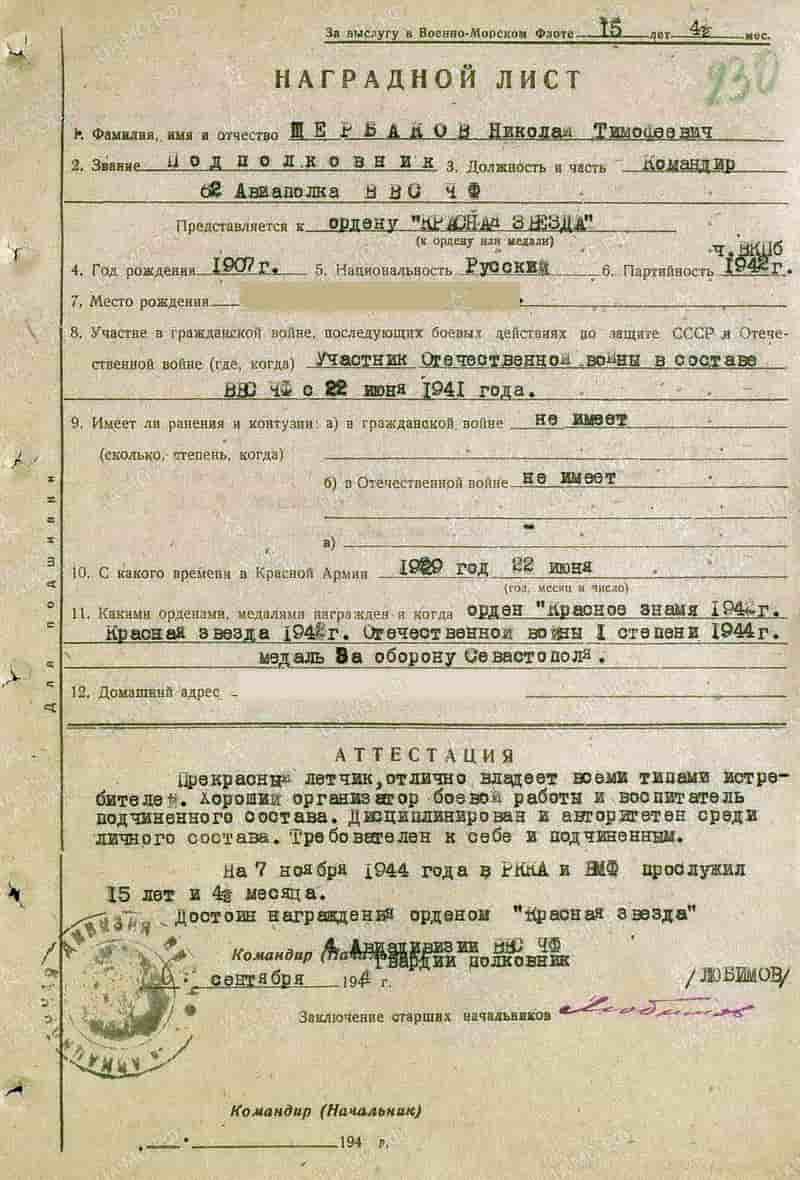 За выслугу в Военно-Морском Флоте 15 лет 4½ мес.
230
НАГРАДНОЙ ЛИСТ
1. Фамилия, имя и отчество ЩЕРБАКОВ Николай Тимофеевич
2. Звание Подполковник 3. Должность и часть Командир
62 Авиаполка ВВС ЧФ
Представляется к ордену "КРАСНАЯ ЗВЕЗДА"
(к ордену или медали)
ч. ВКПб
4. Год рождения 1907 г. 5. Национальность Русский 6. Партийность 1942 г.
7. Место рождения
8. Участие в гражданской войне, последующих боевых действиях по защите СССР и Отече-
ственной войне (где, когда) Участник Отечественной войны в составе
ВВС ЧФ с 22 июня 1941 года.
9. Имеет ли ранения и контузии: а) в гражданской войне не имеет
(сколько, степень, когда)
б) в Отечественной войне не имеет
в)
10. С какого времени в Красной Армии 1929 год 22 июня
(год, месяц и число)
11. Какими орденами, медалями награжден и когда орден "Красное знамя 1942 г.
Красная звезда 1942 г. Отечественной войны I степени 1944 г.
медаль За оборону Севастополя.
12. Домашний адрес -
АТТЕСТАЦИЯ
Прекрасный летчик, отлично владеет всеми типами истре-
бителей. Хороший организатор боевой работы и воспитатель
подчиненного состава. Дисциплинирован и авторитетен среди
личного состава. Требователен к себе и подчиненным.
На 7 ноября 1944 года в РККА и ВМФ прослужил
15 лет и 4½ месяца.
Достоин награждения орденом "Красная звезда"
Командир 4 Авиадивизии ВВС ЧФ
Гвардии полковник
сентября 194 г. /ЛЮБИМОВ/
Заключение старших начальников
Командир (Начальник)
194 г.
Для подшивки